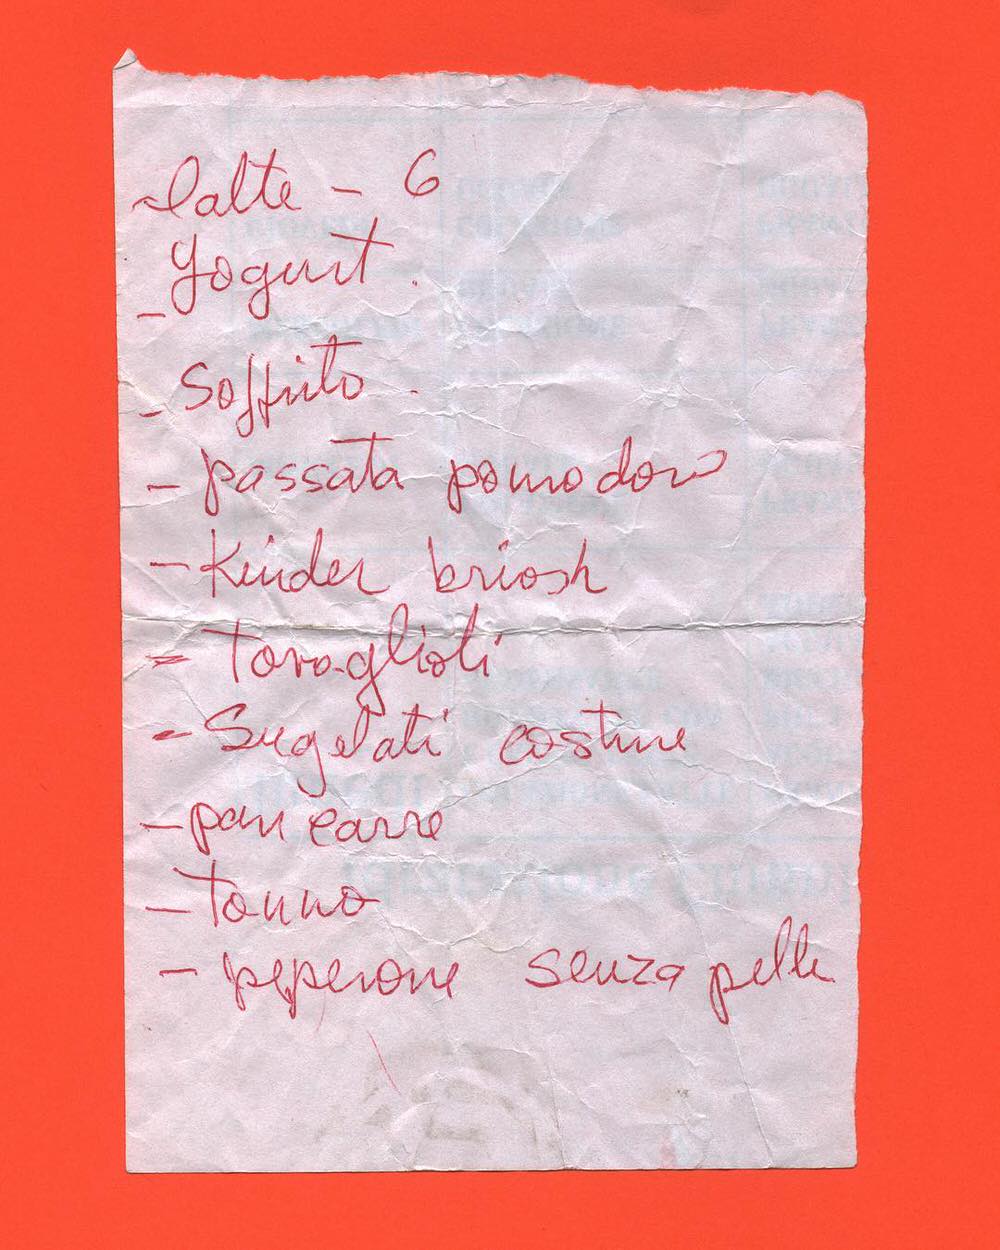 - latte - 6
- Yogurt.
- Soffrito -
- passata pomodoro
- Kinder briosh
- tovaglioli
- Sugelati costine
- pan carre
- tonno
- peperone senza pelle